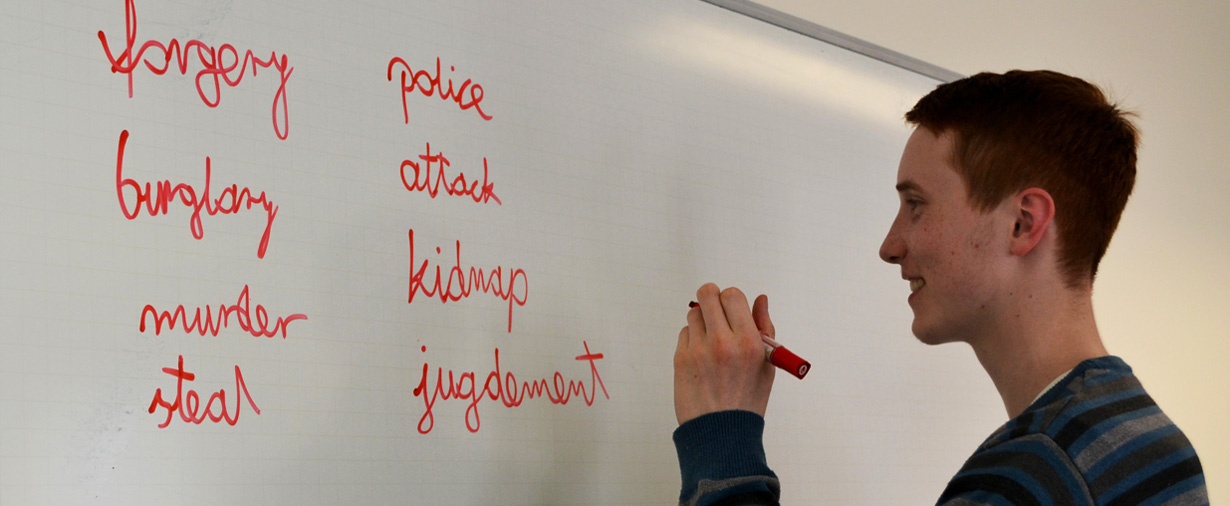 forgery
burglary
murder
steal
police
attack
kidnap
jugdement